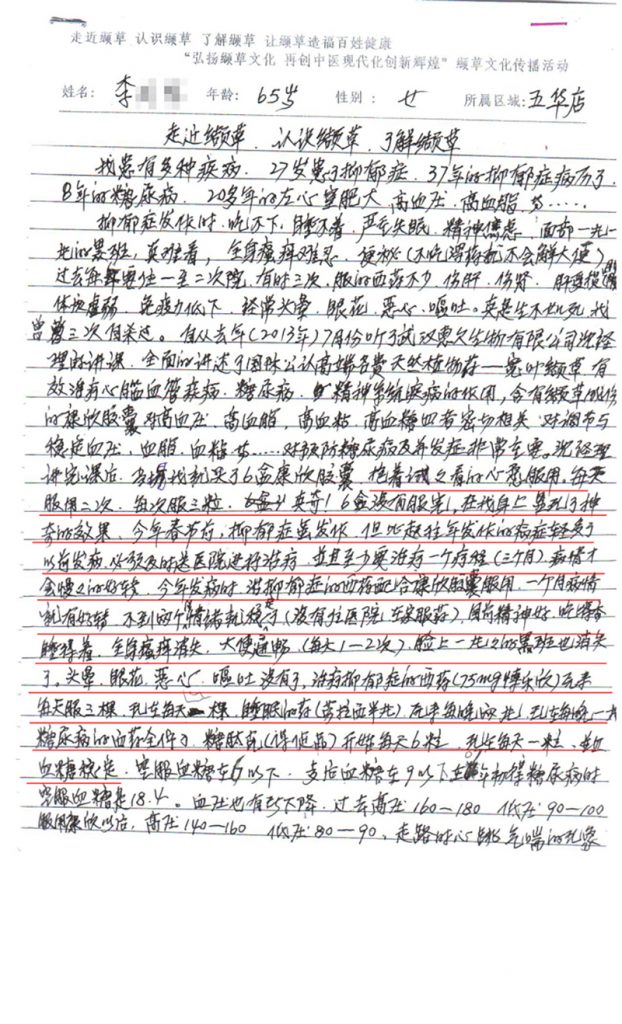 走近缬草 认识缬草 了解缬草 让缬草造福百姓健康
“弘扬缬草文化 再创中医现代化创新辉煌”缬草文化传播活动
姓名: 李 年龄: 65岁 性别: 女 所属区域: 五华店
走近缬草、认识缬草、了解缬草
我患有多种疾病. 27岁患了抑郁症. 37年的抑郁症病历了.
8年的糖尿病. 20多年的左心室肥大. 高血压. 高血脂 ……
抑郁症发作时. 吃不下. 睡不着. 严重失眠. 精神焦虑. 面部一片一
片的黑斑, 真难看, 全身瘙痒难忍. 便秘(不吃泻药就不会解大便)
过去每年要住一至二次院. 有时三次. 服的西药不少. 伤肝. 伤肾.
体极虚弱. 免疫力低下. 经常头晕. 眼花. 恶心. 呕吐. 真是生不如死. 我
曾三次自杀过。自从去年(2013年)7月份听了 生物有限公司沈经
理的讲课. 全面的讲述了国际公认高端名贵天然植物药—宽叶缬草 有
效治疗心脑血管疾病. 糖尿病. 精神系统疾病的作用, 含有缬草成份
的康欣胶囊对高血压. 高血脂, 高血粘. 高血糖四者密切相关. 对调节与
稳定血压. 血脂. 血糖 …… 对预防糖尿病及并发症非常重要. 沈经理
讲完课后. 当场我就买了6盒康欣胶囊. 抱着试之看的心态服用. 每天
服用二次. 每次服三粒. 6盒没有服完, 在我身上显示了神
奇的效果. 今年春节前, 抑郁症虽发作. 但比起往年发作的病症轻多了
以前发病. 必须及时送医院进行治疗. 并且至少要治疗一个疗程(三个月). 病情才
会慢之的好转. 今年发病时. 治抑郁症的西药配合康欣胶囊服用. 一个月病情
就有好转. 不到两个月情绪就稳定了(没有住医院 在家服药). 目前精神好. 吃得香
睡得着. 全身瘙痒消失. 大便通畅. (每天1—2次). 脸上一片之的黑斑也消失
了. 头晕. 眼花. 恶心. 呕吐没有了, 治疗抑郁症的西药(75mg博乐欣)原来
每天服三粿. 现在每天一粿. 睡眠的药( )原来每晚两片. 现在每晚一片
糖尿病的西药全停了. 糖肽 ( )开始每天6粒. 现在每天一粒.
血糖稳定. 空腹血糖在6以下. 支后血糖在9以下 年初得糖尿病时
空腹血糖是18.4。血压也有所下降. 过去高压160—180 低压90—100
服用康欣以后, 高压140—160 低压80—90. 走路时心跳气喘的现象